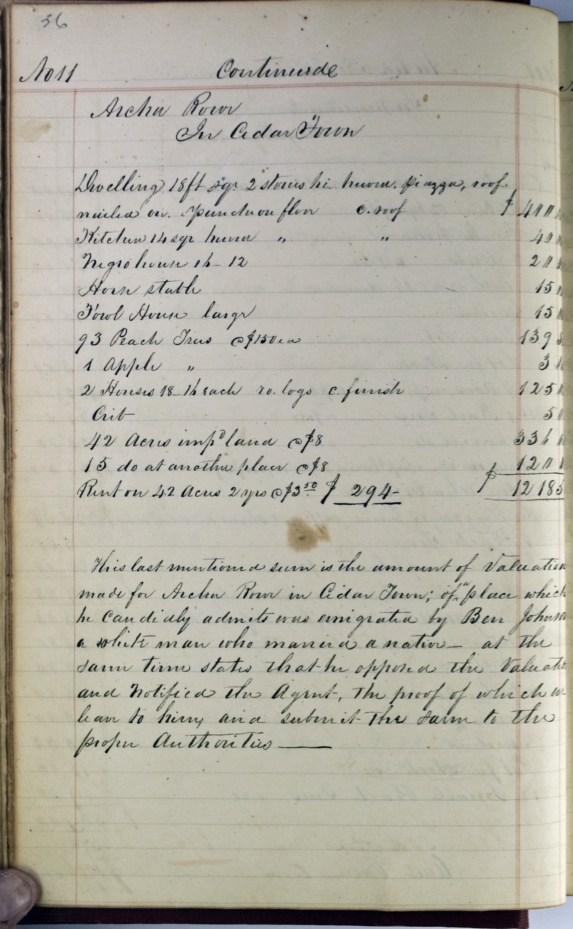 36
No 11 Continuede
Archa Rowe
In Cedar Town
Dwelling 18ft sqr 2 stories hi hewed. Piazza, roof
nailed on. Puncheon floor c. roof $ 400
Kitchen 14 sqr hewed " " 40
Negro house 16-12 20
Horse stable 15
Fowl House large 15
93 Peach Trees @ $1 50 ea 139
1 Apple " 3
2 Houses 18-16 each ro. logs c. finish 125
Crib 5
42 Acres imp'd land @ $8 336
15 do at another place @ $8 120
Rent on 42 Acres 2 yrs @ $3 50 $ 294- $ 1218 5
This last mentioned sum is the amount of Valuation
made for Archa Rowe in Cedar Town; of a place which
he candidly admits was emigrated by Ben Johnson
a white man who married a native - at the
same time states that he opposed the Valuation
and Notified the Agent, the proof of which we
leave to him, and submit the same to the
proper Authorities —